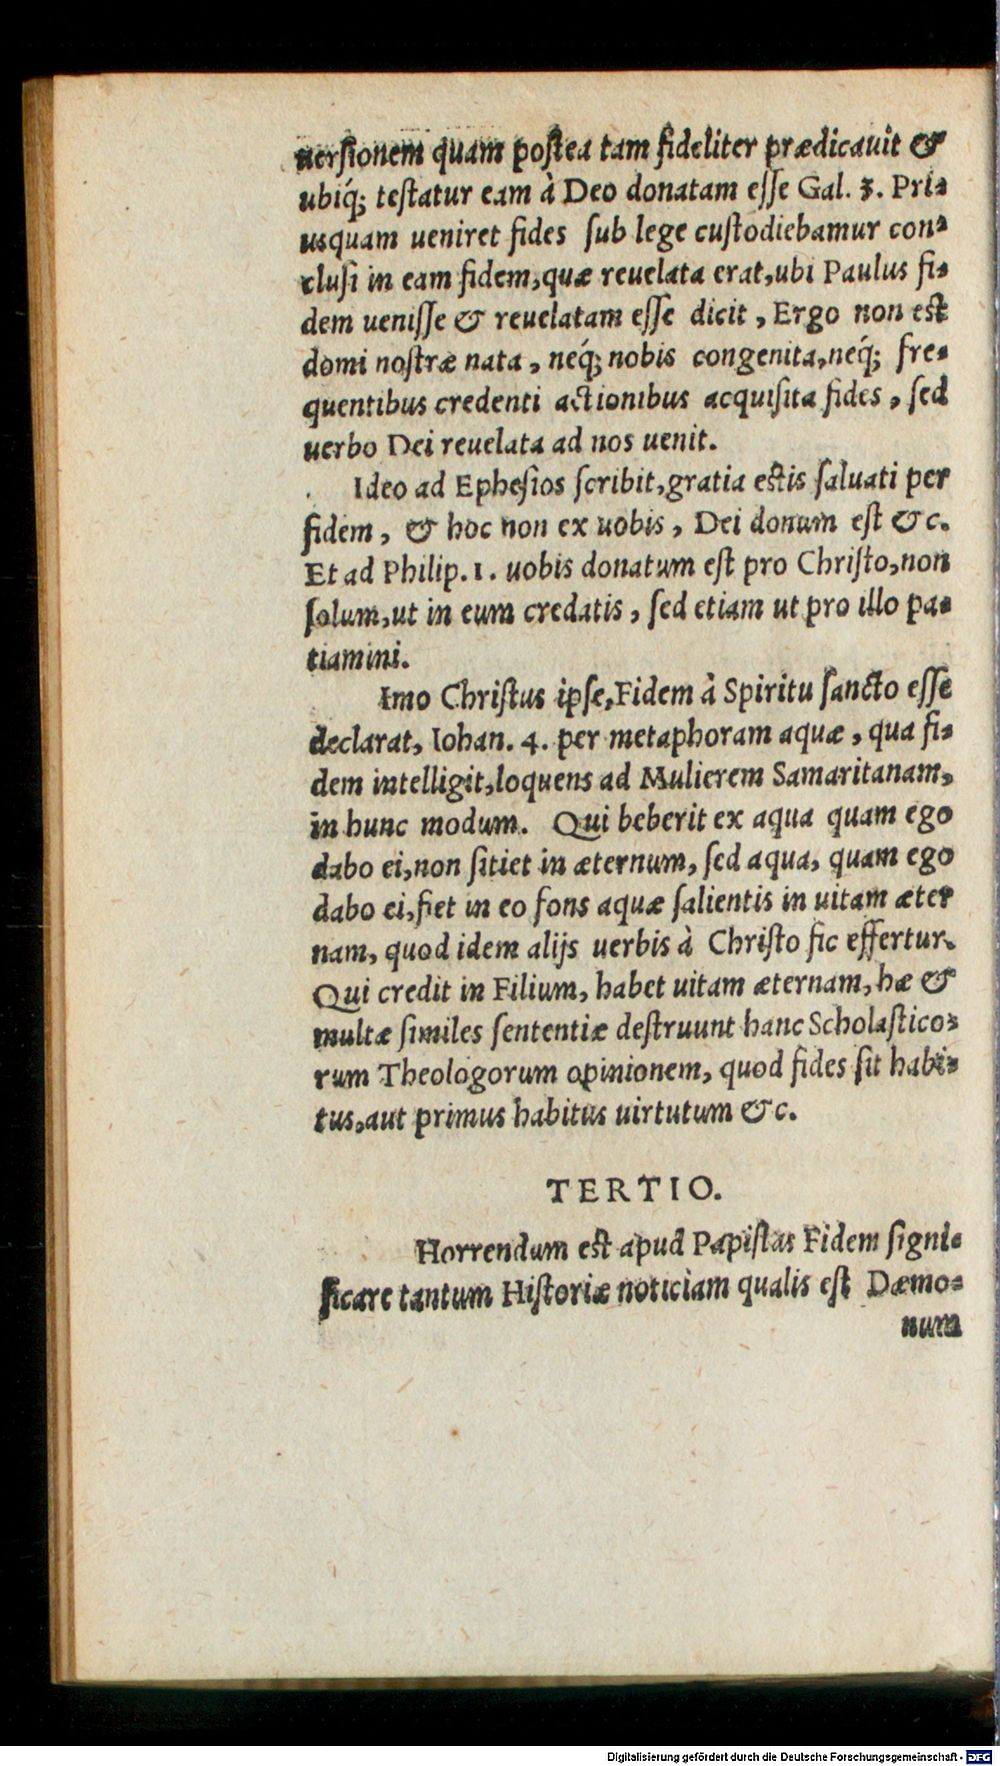 uersionem quam postea tam fideliter prædicauit &
ubiq́; testatur eam à Deo donatam esse Gal. 3. Pri-
usquam ueniret fides sub lege custodiebamur con-
clusi in eam fidem, quæ reuelata erat, ubi Paulus fi-
dem uenisse & reuelatam esse dicit, Ergo non est
domi nostræ nata, neq́; nobis congenita, neq́; fre-
quentibus credenti actionibus acquisita fides, sed
uerbo Dei reuelata ad nos uenit.
Ideo ad Ephesios scribit, gratia estis saluati per
fidem, & hoc non ex uobis, Dei donum est &c.
Et ad Philip. 1. uobis donatum est pro Christo, non
solum, ut in eum credatis, sed etiam ut pro illo pa-
tiamini.
Imo Christus ipse, Fidem à Spiritu sancto esse
declarat, Iohan. 4. per metaphoram aquæ, qua fi-
dem intelligit, loquens ad Mulierem Samaritanam,
in hunc modum. Qui beberit ex aqua quam ego
dabo ei, non sitiet in æternum, sed aqua, quam ego
dabo ei, fiet in eo fons aquæ salientis in uitam æter
nam, quod idem alijs uerbis à Christo sic effertur.
Qui credit in Filium, habet uitam æternam, hæ &
multæ similes sententiæ destruunt hanc Scholastico-
rum Theologorum opinionem, quod fides sit habi-
tus, aut primus habitus uirtutum &c.
TERTIO.
Horrendum est apud Papistas Fidem signi-
ficare tantum Historiæ noticiam qualis est Dæmo-
num
Digitalisierung gefördert durch die Deutsche Forschungsgemeinschaft - DFG